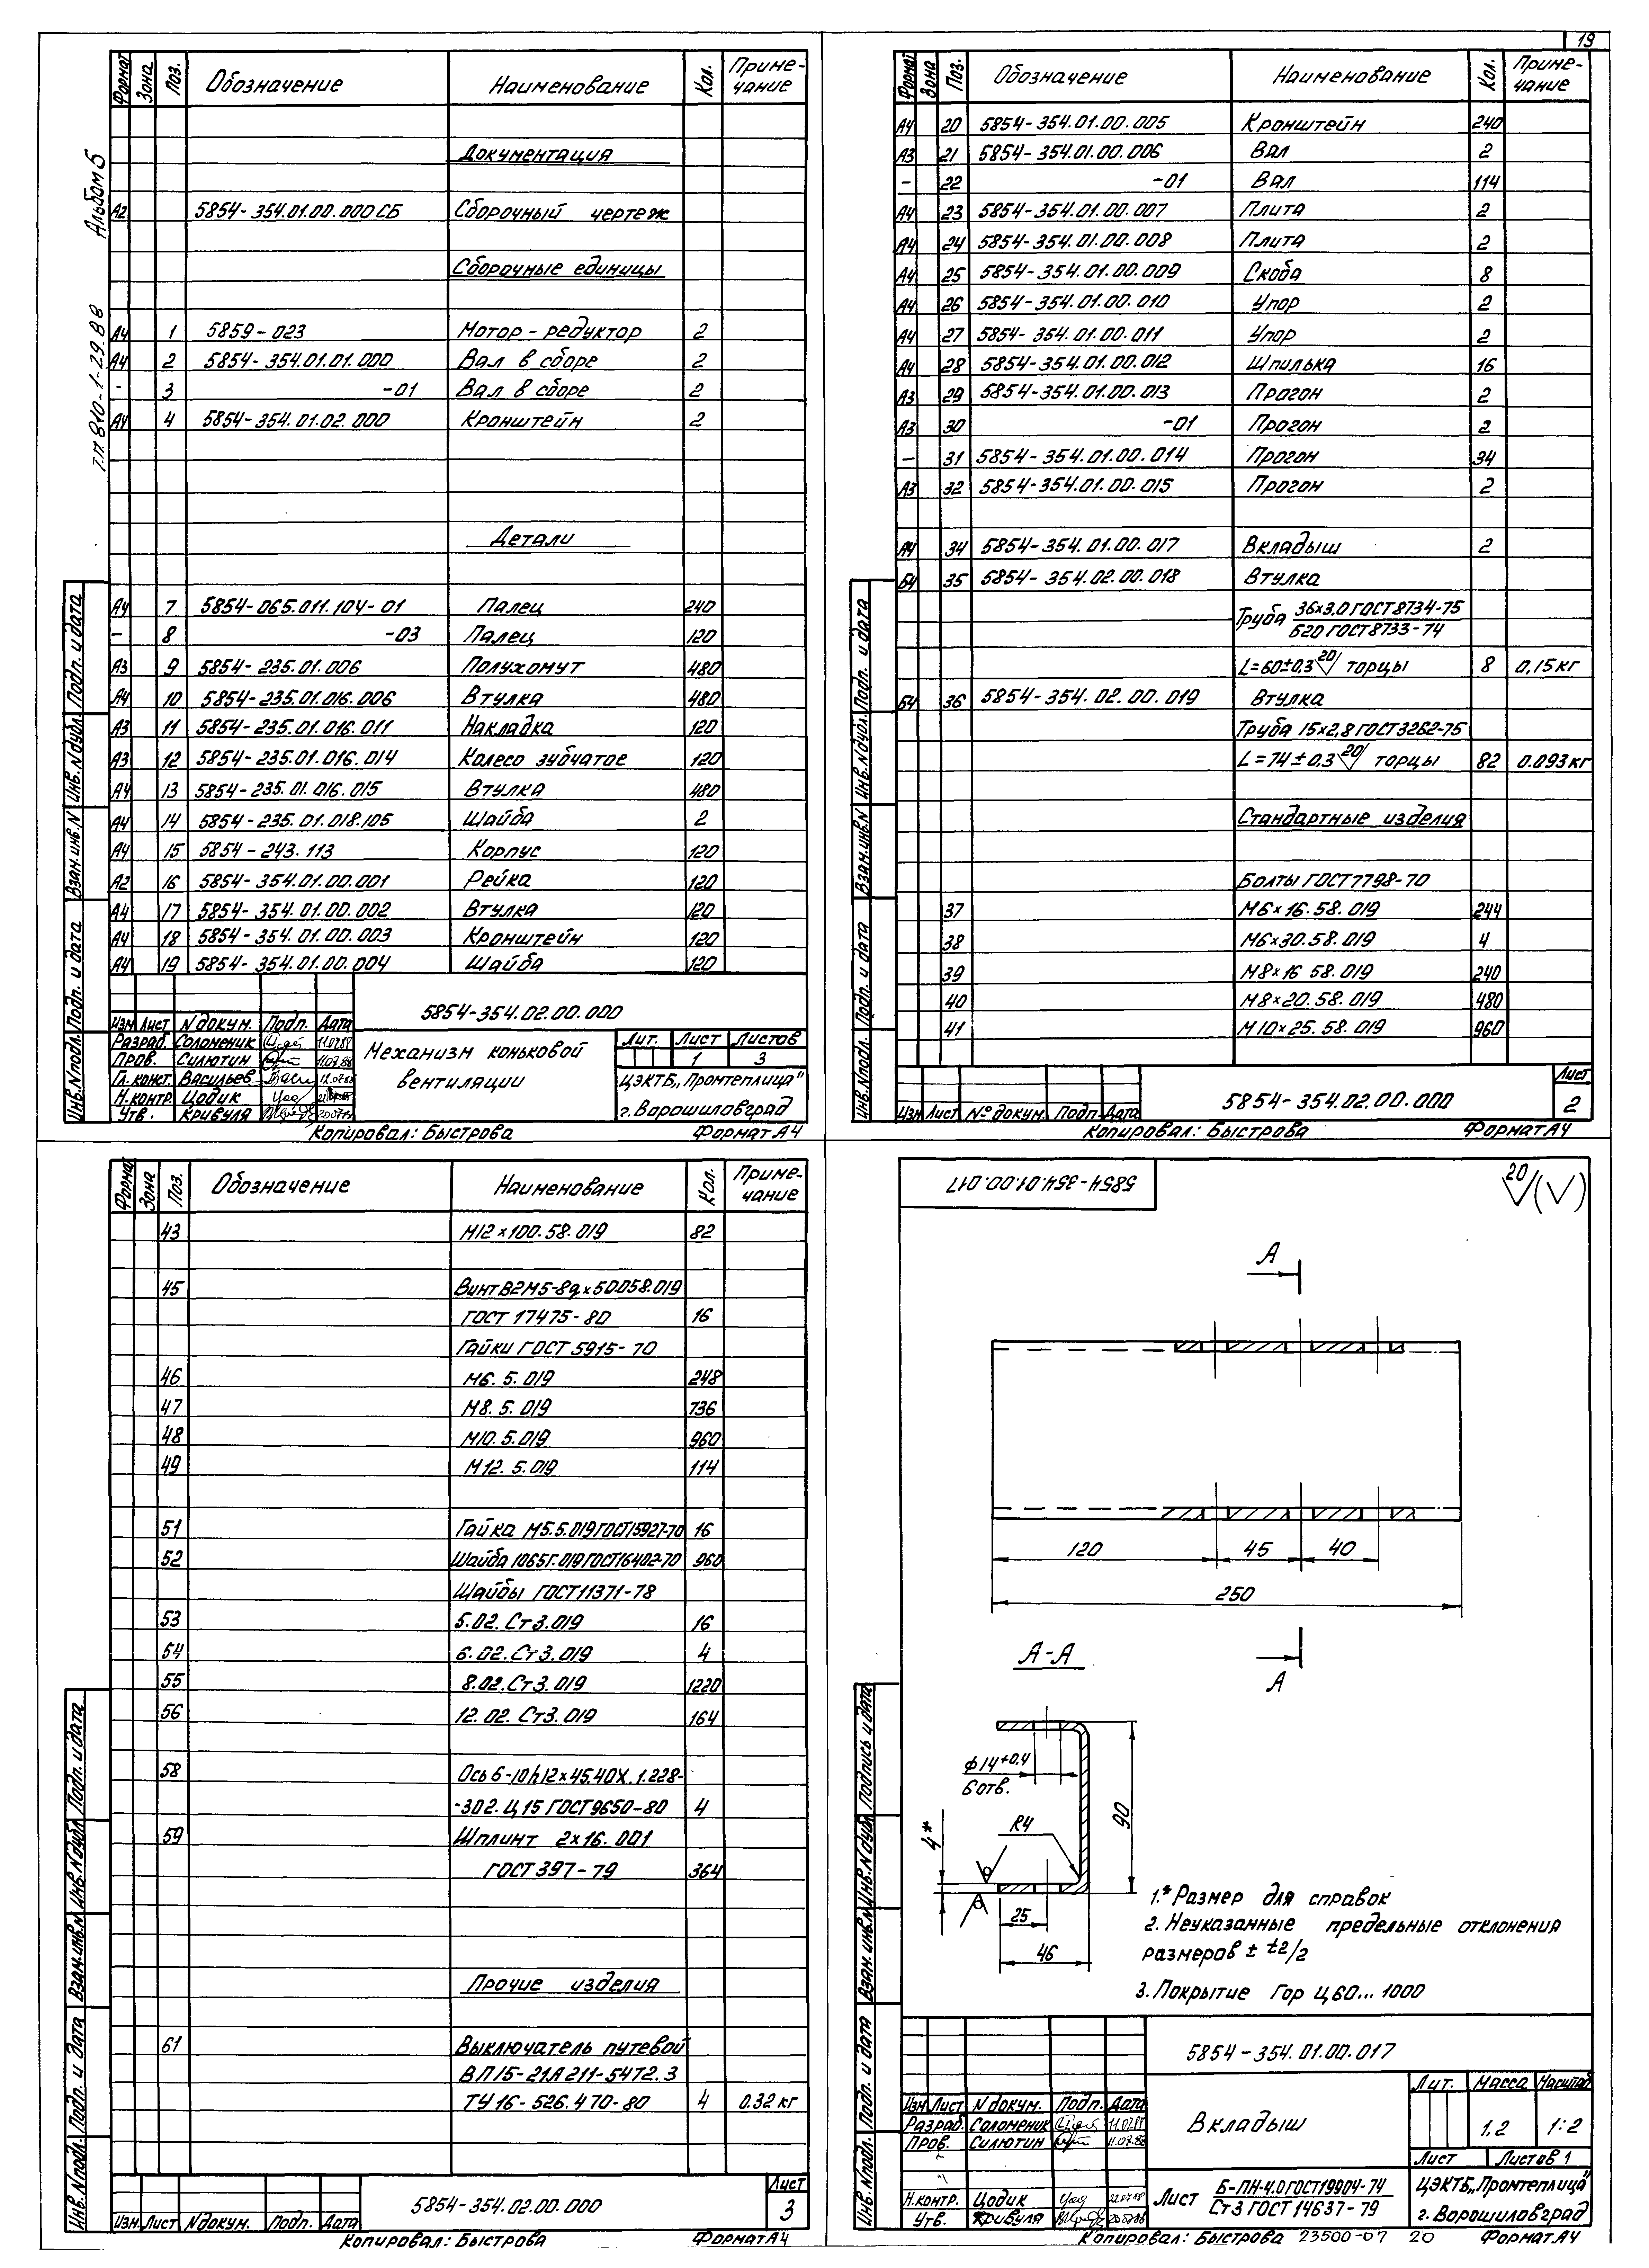 19
Альбом 5
т.п. 810-1-29.88
Формат Зона Поз. Обозначение Наименование Кол. Приме-чание
Документация
А2 5854-354.01.00.000 СБ Сборочный чертеж
Сборочные единицы
А4 1 5859-023 Мотор-редуктор 2
А4 2 5854-354.01.01.000 Вал в сборе 2
- 3 -01 Вал в сборе 2
А4 4 5854-354.01.02.000 Кронштейн 2
Детали
А4 7 5854-065.011.104-01 Палец 240
- 8 -03 Палец 120
А3 9 5854-235.01.006 Полухомут 480
А4 10 5854-235.01.016.006 Втулка 480
А3 11 5854-235.01.016.011 Накладка 120
А3 12 5854-235.01.016.014 Колесо зубчатое 120
А4 13 5854-235.01.016.015 Втулка 480
А4 14 5854-235.01.018.105 Шайба 2
А4 15 5854-243.113 Корпус 120
А2 16 5854-354.01.00.001 Рейка 120
А4 17 5854-354.01.00.002 Втулка 120
А4 18 5854-354.01.00.003 Кронштейн 120
А4 19 5854-354.01.00.004 Шайба 120
Инв.N подл. Подп. и дата Взам.инв.N Инв.N дубл. Подп. и дата
5854-354.02.00.000
Изм Лист N докум. Подп. Дата
Разраб. Соломеник 11.07.88
Пров. Силютин 11.07.88
Гл. конст. Васильев 12.07.88
Н.контр. Цодик
Утв. Кривуля
Механизм коньковой
вентиляции
Лит. Лист Листов
1 3
ЦЭКТБ „Промтеплица"
г. Ворошиловград
Копировал: Быстрова Формат А4
Формат Зона Поз. Обозначение Наименование Кол. Приме-чание
А4 20 5854-354.01.00.005 Кронштейн 240
А3 21 5854-354.01.00.006 Вал 2
- 22 -01 Вал 114
А4 23 5854-354.01.00.007 Плита 2
А4 24 5854-354.01.00.008 Плита 2
А4 25 5854-354.01.00.009 Скоба 8
А4 26 5854-354.01.00.010 Упор 2
А4 27 5854-354.01.00.011 Упор 2
А4 28 5854-354.01.00.012 Шпилька 16
А3 29 5854-354.01.00.013 Прогон 2
А3 30 -01 Прогон 2
- 31 5854-354.01.00.014 Прогон 34
А3 32 5854-354.01.00.015 Прогон 2
А4 34 5854-354.01.00.017 Вкладыш 2
Б4 35 5854-354.02.00.018 Втулка
Труба 36×3,0 ГОСТ 8734-75
Б20 ГОСТ 8733-74
L=60±0,3 20 торцы 8 0,15 кг
Б4 36 5854-354.02.00.019 Втулка
Труба 15×2,8 ГОСТ 3262-75
L=74±0,3 20 торцы 82 0.093 кг
Стандартные изделия
Болты ГОСТ 7798-70
37 М6×16.58.019 244
38 М6×30.58.019 4
39 М8×16 58.019 240
40 М8×20.58.019 480
41 М10×25.58.019 960
Инв.N подл. Подп. и дата Взам.инв.N Инв.N дубл. Подп. и дата
Изм Лист N° докум. Подп. Дата
5854-354.02.00.000
Лист
2
Копировал: Быстрова Формат А4
Формат Зона Поз. Обозначение Наименование Кол. Приме-чание
43 М12×100.58.019 82
45 Винт В2М5-8g×50.058.019
ГОСТ 17475-80 16
Гайки ГОСТ 5915-70
46 М6.5.019 248
47 М8.5.019 736
48 М10.5.019 960
49 М12.5.019 114
51 Гайка М5.5.019 ГОСТ 15927-70 16
52 Шайба 10 65Г.019 ГОСТ 6402-70 960
Шайбы ГОСТ 11371-78
53 5.02.Ст3.019 16
54 6.02.Ст3.019 4
55 8.02.Ст3.019 1220
56 12.02.Ст3.019 164
58 Ось 6-10h12×45.40Х.1.228-
-302.Ц15 ГОСТ 9650-80 4
59 Шплинт 2×16.001
ГОСТ 397-79 364
Прочие изделия
61 Выключатель путевой
ВП15-21А211-54Т2.3
ТУ16-526.470-80 4 0.32 кг
Инв.N подл. Подп. и дата Взам.инв.N Инв.N дубл. Подп. и дата
Изм. Лист N докум. Подп. Дата
5854-354.02.00.000
Лист
3
Копировал: Быстрова Формат А4
5854-354.01.00.017
20 (√)
А
120 45 40
250
А-А
А
Ф14+0,4
6 отв.
R4
4*
90
25
46
1.* Размер для справок
2. Неуказанные предельные отклонения
размеров ± t2/2
3. Покрытие Гор Ц60...1000
Инв.N подл. Подп. и дата Взам.инв.N Инв.N дубл. Подпись и дата
5854-354.01.00.017
Изм Лист N докум. Подп. Дата
Разраб. Соломеник 11.07.88
Пров. Силютин 11.07.88
Н.контр. Цодик
Утв. Кривуля
Вкладыш
Лит. Масса Масштаб
1,2 1:2
Лист Листов 1
Лист Б-ПН-4.0 ГОСТ 19904-74
Ст3 ГОСТ 14637-79
ЦЭКТБ „Промтеплица"
г. Ворошиловград
Копировал: Быстрова 23500-07 20 Формат А4